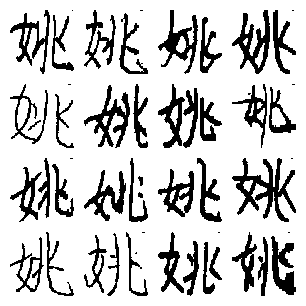 姚姚姚姚
姚姚姚姚
姚姚姚姚
姚姚姚姚